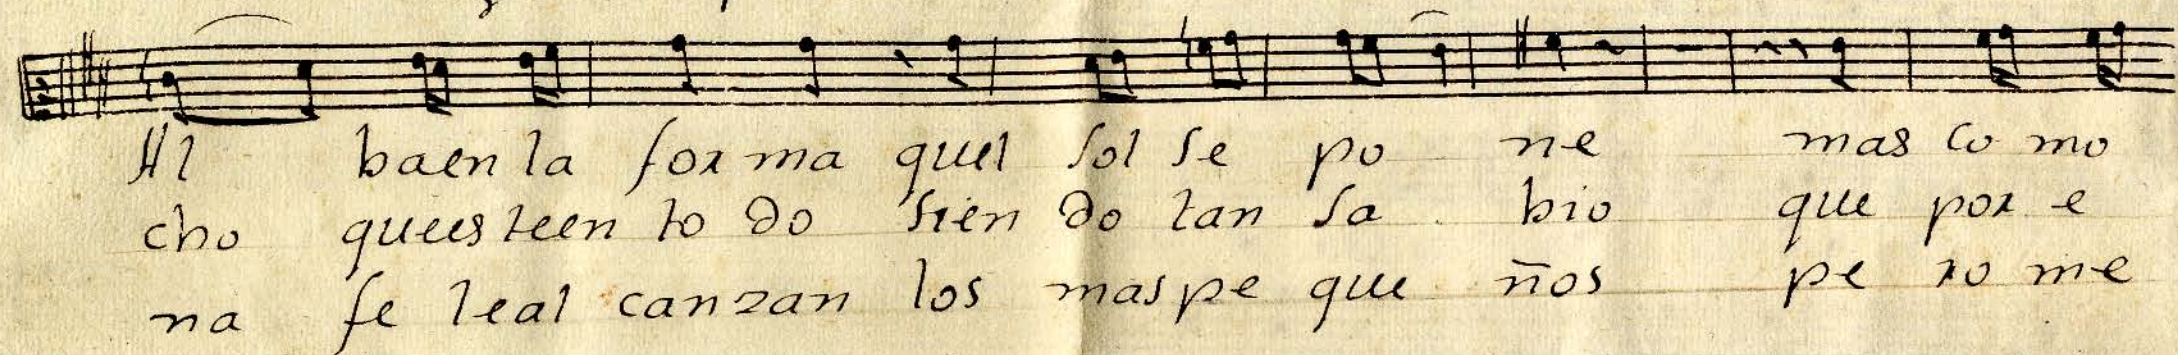 Al baen la for ma quel sol se po ne mas co mo
cho quees teen to do sien do tan sa bio que por e
na fe leal canzan los mas pe que ños pe ro me